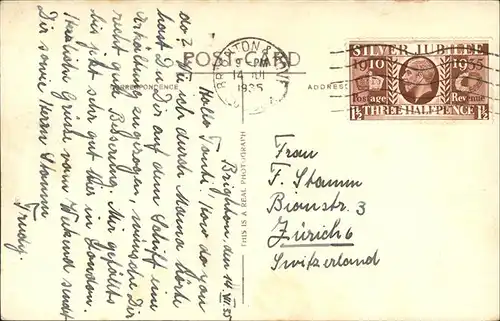 POST CARD
CORRESPONDENCE
ADDRESS
THIS IS A REAL PHOTOGRAPH
BRIGHTON & HOVE
9 PM
14 JUL
1935
SILVER JUBILEE
1910 1935
Postage Revenue
1½ THREE HALFPENCE 1½
Brighton den 14. VII. 35
Hallo Tanti! How do you
do? Wie ich durch Mama hörte
hast Du Dir auf dem Schiff eine
Erkältung zugezogen, wünsche Dir
recht gute Besserung. Mir gefällts
bis jetzt sehr gut hier in London.
Herzliche Grüsse vom Weekend sendet
Dir sowie Herrn Stamm
Trudy.
Frau
F. Stamm
Bionstr. 3
Zürich 6
Switzerland